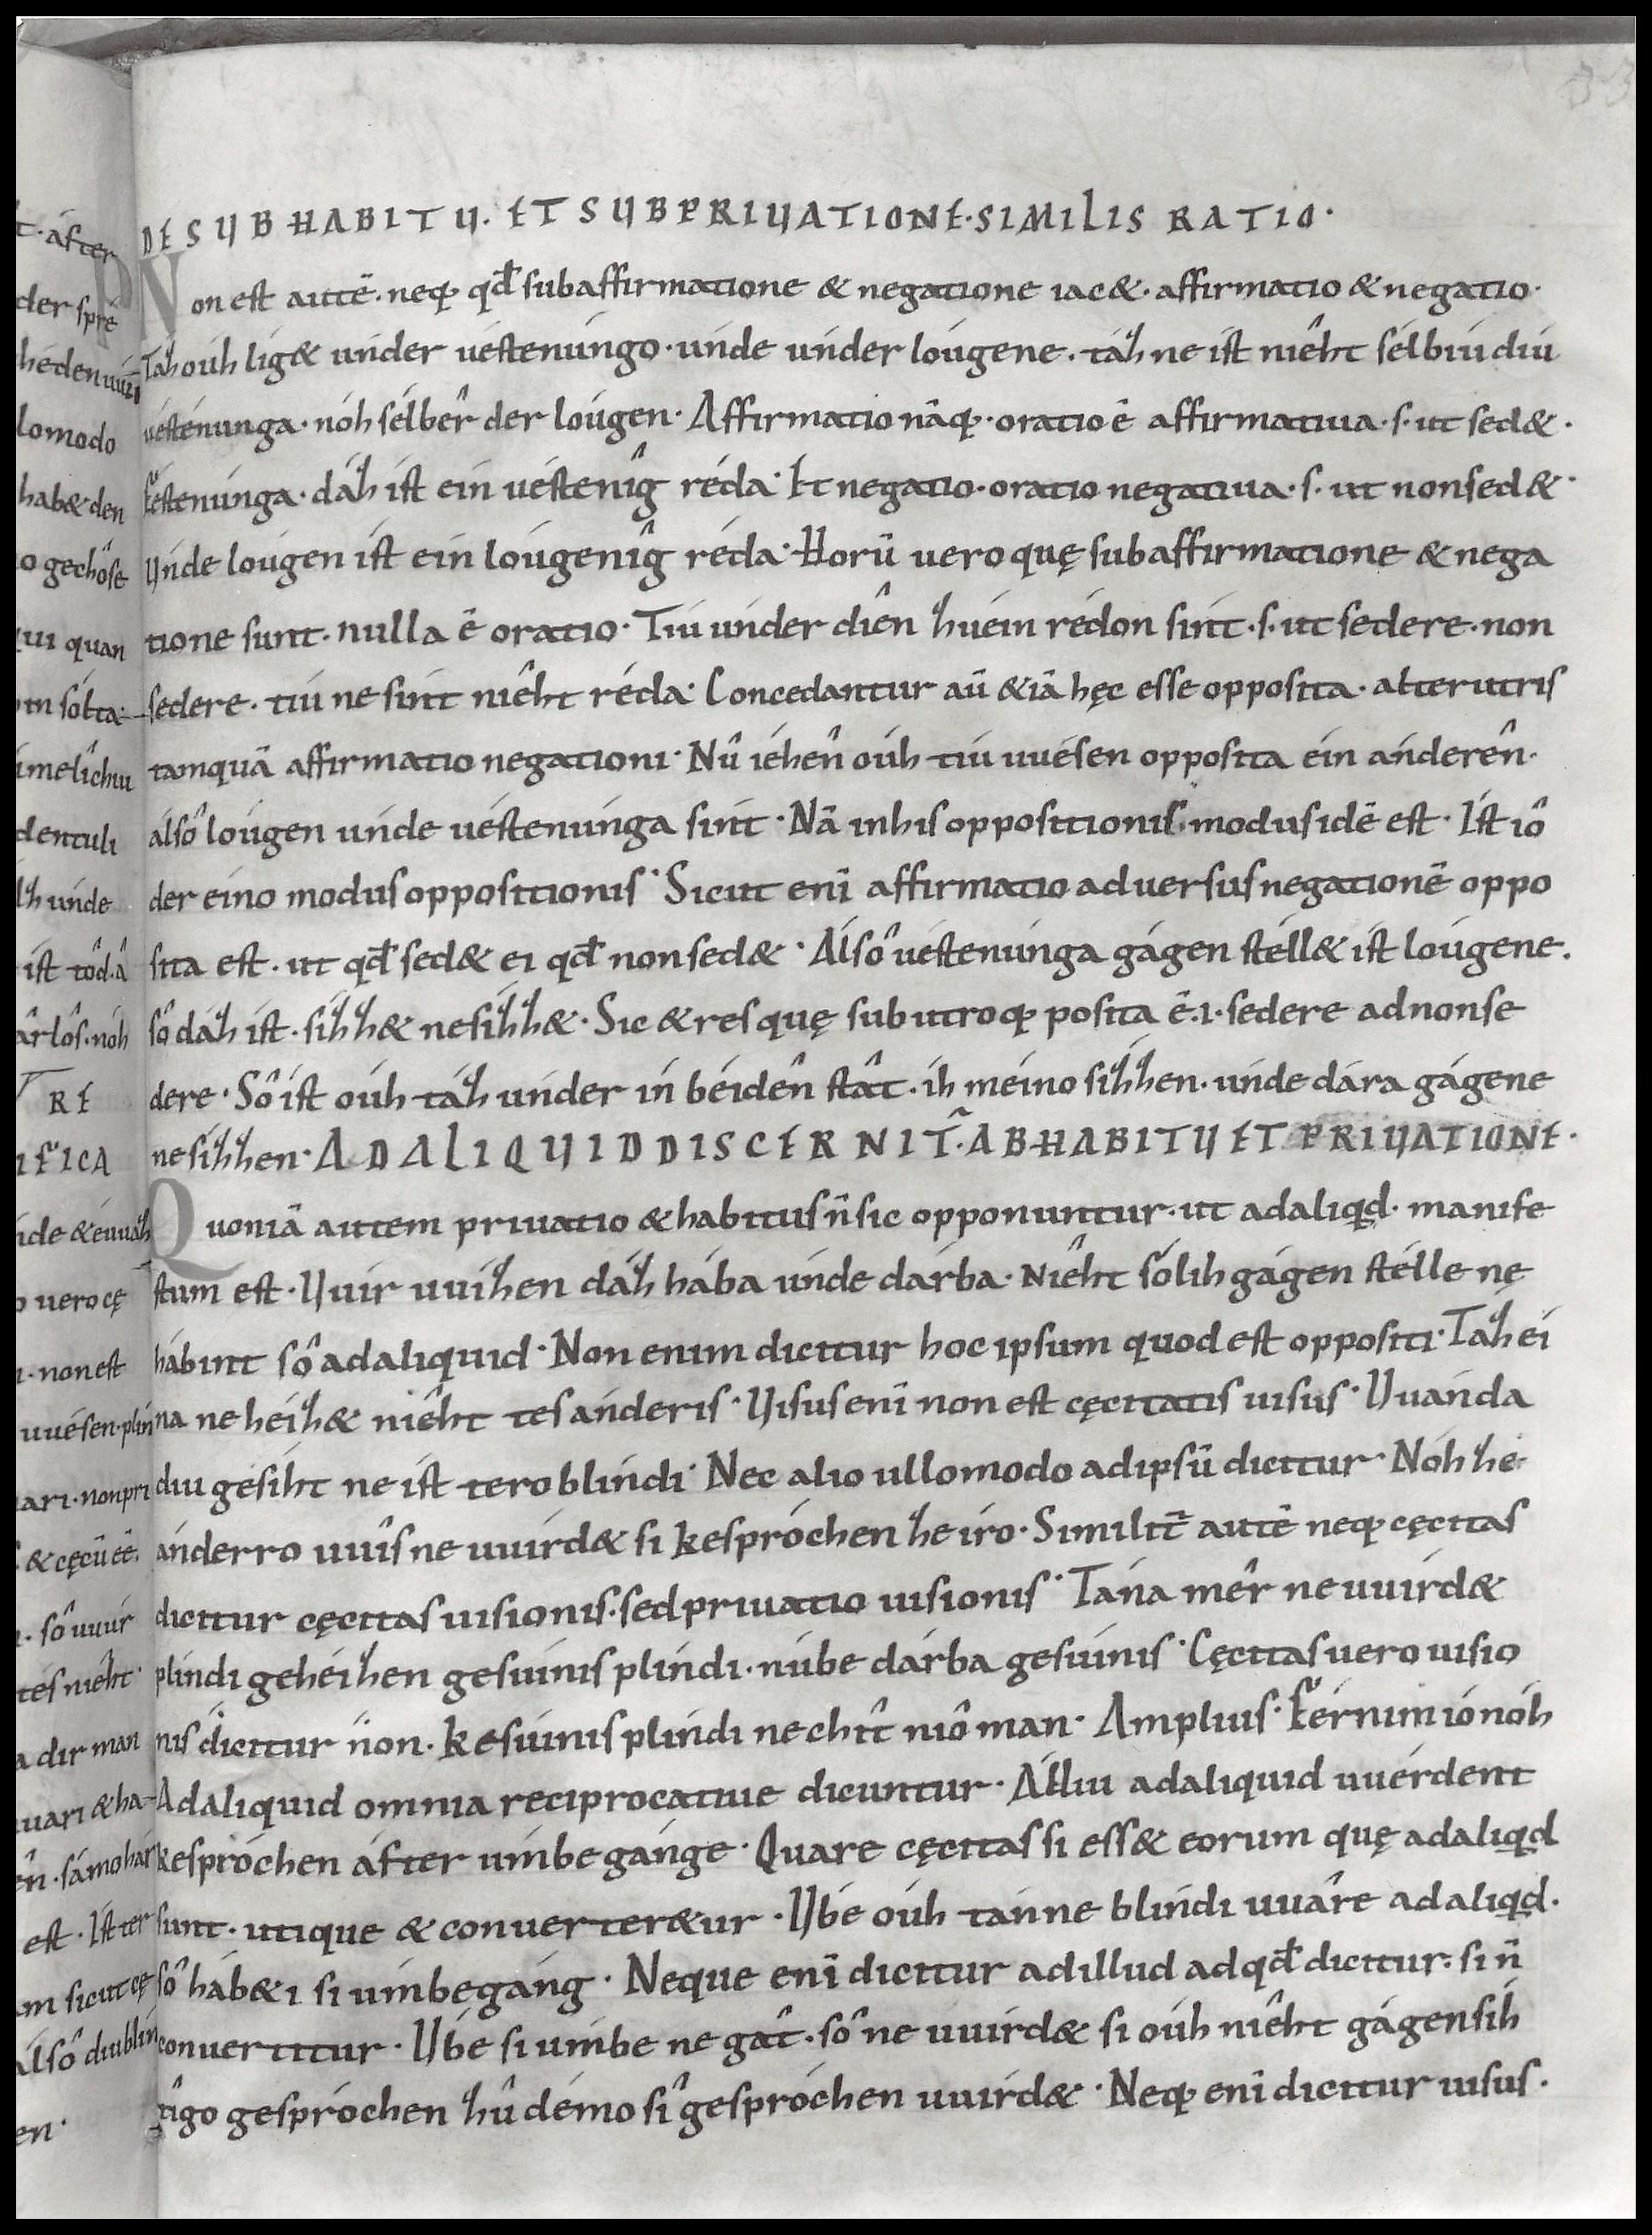 t· áfter
der spré
héden uuír
lomodo
hab& den
o gechôse
qui quan
in sólta·
imelîchiu
dentuli
lz únde
ist tôd·â
ârlôs·nóh
RE
IFICA
íde & éuuáz
o vero cę
i·non est
uuésen·plín
ari·non pri
& cęcū eē·
i·sô uuir
tés nîeht·
a dir man
uari & ha
ên·sámo hár
est·Ist ter
m sicut cę
álsô diu blín
en·
DE SUB HABITU· ET SUB PRIUATIONE·SIMILIS RATIO·
Non est autē·neq; qđ sub affirmatione & negatione iac&·affirmatio & negatio·
Táz óuh lig& únder uéstenúngo·únde únder lóugene·táz ne ist nîeht sélbiu diu
uéstenunga·nóh sélbêr der lóugen·Affirmatio nāq;·oratio ē affirmatiua·s·ut sed&·
Féstenúnga·dáz ist ein uéstenîg réda·Et negatio·oratio negatiua·s·ut non sed&·
Unde lóugen ist ein lóugenîg réda·Horū vero quę sub affirmatione & nega
tione sunt·nulla ē oratio·Tíu únder dîen zuéin rédon sínt·s·ut sedere·non
sedere·tíu ne sínt nîeht réda·Concedantur aū & iā hęc esse opposita·alterutris
tamquā affirmatio negationi·Nû iéhên óuh tíu uuésen opposita ein ánderên·
álsô lóugen únde uéstenúnga sínt·Nā in his oppositionis·modus idē est·Ist îo
der eino modus oppositionis·Sicut enī affirmatio aduersus negationē oppo
sita est·ut qđ sed& ei qđ non sed&·Álsô uéstenúnga gágen stéll& ist lóugene.
sô dáz ist·sízz& ne sízz&·Sic & res quę sub utroq; posita ē·i·sedere ad non se
dere·Sô ist óuh táz únder in béidên stât·íh méino sízzen·únde dára gágene
ne sízzen·AD ALIQUID DISCERNIT̄·AB HABITU ET PRIUATIONE·
Quoniā autem priuatio & habitus n̄ sic opponuntur·ut ad aliqd·manife
stum est·Uuir uuízen dáz hába únde dárba·nîeht sólih gágen stélle nę
hábint sô ad aliquid·Non enim dicitur hoc ipsum quod est oppositi·Táz eí
na ne héiz& nîeht tes ánderis·Uisus enī non est cęcitatis uisus·Uuánda
diu gesíht ne ist tero blíndi·Nec alio ullo modo ad ipsū dicitur·Nóh ze
ánderro uuîs ne uuírd& si kespróchen ze íro·Similit̄ autē neq; cęcitas
dicitur cęcitas uisionis·sed priuatio uisionis·Tána mêr ne uuírd&
plíndi gehéizen gesíunis plíndi·núbe dárba gesíunis·Cęcitas vero uisio
nis dicitur non·Kesíunis plíndi ne chît nîoman·Amplius·Férnim io nóh
Ad aliquid omnia reciprocatiue dicuntur·Álliu ad aliquid uuérdent
kespróchen áfter úmbegánge·Quare cęcitas si ess& eorum quę ad aliqd
sunt·utique & conuerter&ur·Úbe óuh tánne blíndi uuâre ad aliqd·
sô háb&i si úmbegáng·Neque enī dicitur ad illud ad qđ dicitur·si n̄
conuertitur·Úbe si úmbe ne gât·sô ne uuírd& si óuh nîeht gágen síh
tîgo gespróchen zû démo sî gespróchen uuírd&·Neq; enī dicitur uisus·